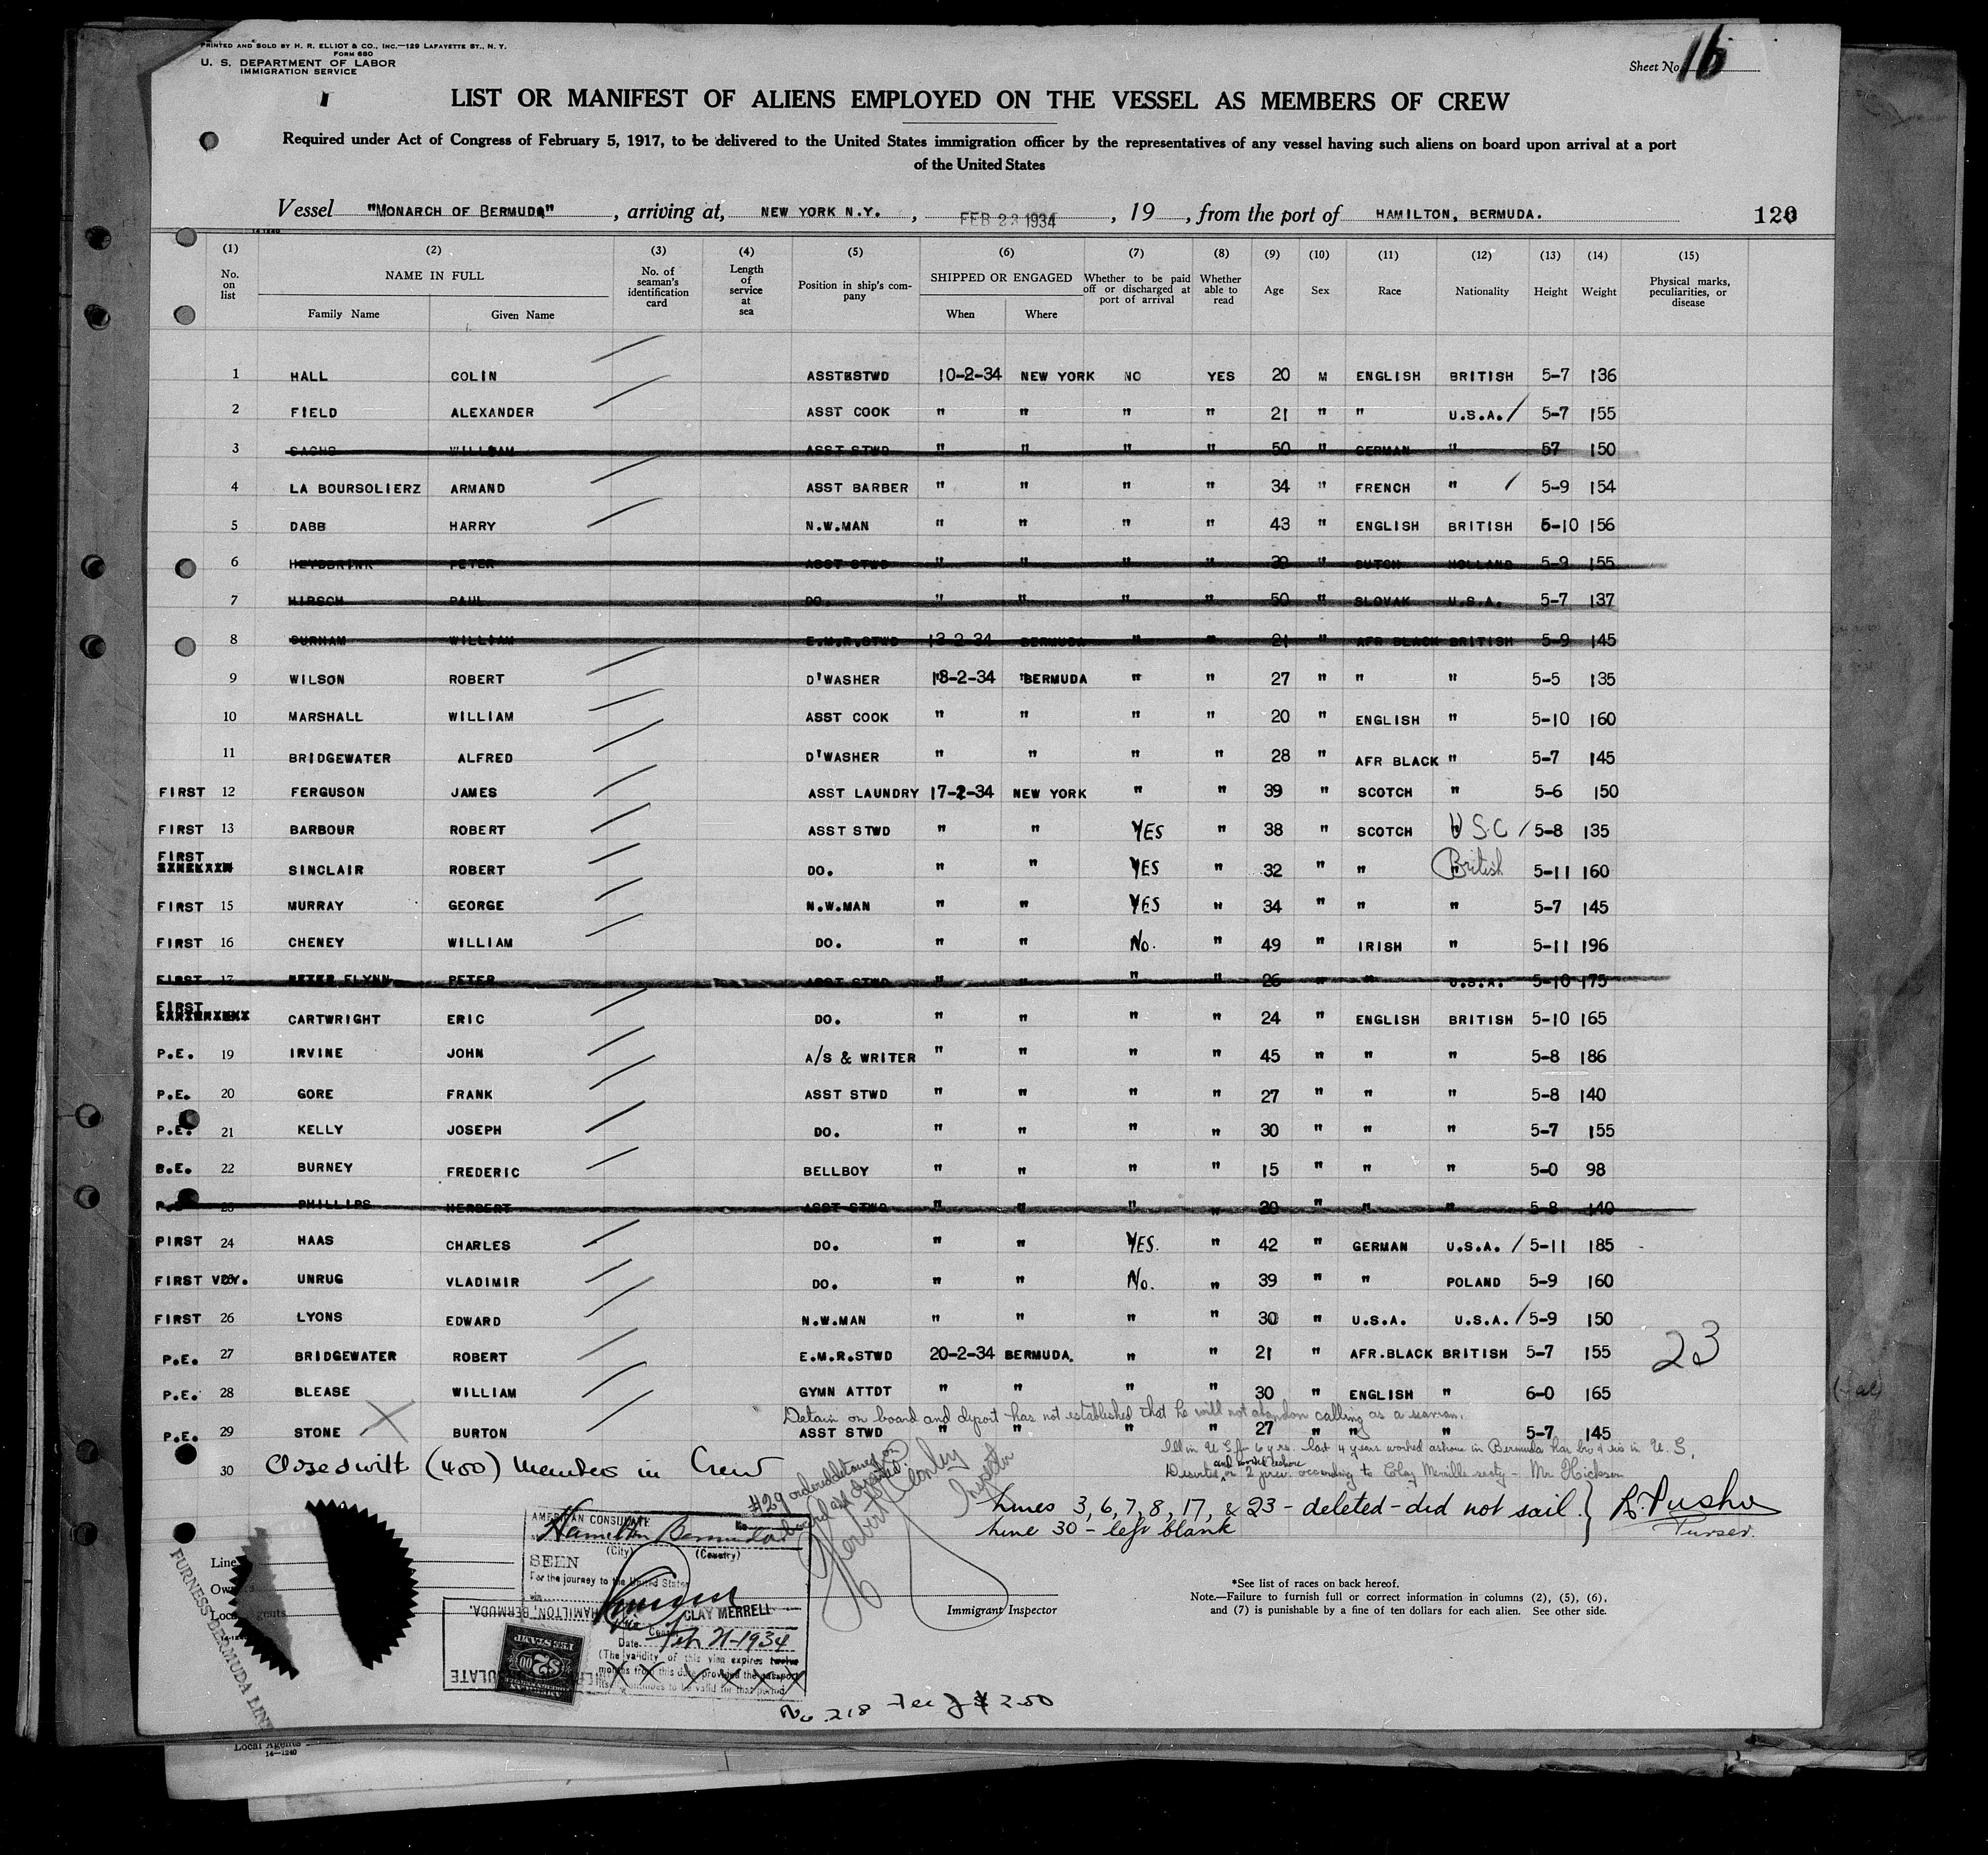 PRINTED AND SOLD BY H. R. ELLIOT & CO., INC.—129 LAFAYETTE ST., N. Y.
FORM 680
U. S. DEPARTMENT OF LABOR
IMMIGRATION SERVICE
Sheet No. 16
LIST OR MANIFEST OF ALIENS EMPLOYED ON THE VESSEL AS MEMBERS OF CREW
Required under Act of Congress of February 5, 1917, to be delivered to the United States immigration officer by the representatives of any vessel having such aliens on board upon arrival at a port
of the United States
Vessel "MONARCH OF BERMUDA", arriving at, NEW YORK N.Y., FEB 22 1934, 19 , from the port of HAMILTON, BERMUDA. 120
(1) (2) (3) (4) (5) (6) (7) (8) (9) (10) (11) (12) (13) (14) (15)
No. on list NAME IN FULL Family Name Given Name No. of seaman's identification card Length of service at sea Position in ship's company SHIPPED OR ENGAGED When Where Whether to be paid off or discharged at port of arrival Whether able to read Age Sex Race Nationality Height Weight Physical marks, peculiarities, or disease
1 HALL COLIN ASSTSTWD 10-2-34 NEW YORK NO YES 20 M ENGLISH BRITISH 5-7 136
2 FIELD ALEXANDER ASST COOK " " " " 21 " " U.S.A. 5-7 155
3 SACHS WILLIAM ASST STWD " " " " 50 " GERMAN " 57 150
4 LA BOURSOLIERZ ARMAND ASST BARBER " " " " 34 " FRENCH " 5-9 154
5 DABB HARRY N.W.MAN " " " " 43 " ENGLISH BRITISH 5-10 156
6 HEYDBRINK PETER ASST STWD " " " " 39 " DUTCH HOLLAND 5-9 155
7 HIRSCH PAUL DO. " " " " 50 " SLOVAK U.S.A. 5-7 137
8 DURHAM WILLIAM E.M.R.STWD 13-2-34 BERMUDA " " 21 " AFR BLACK BRITISH 5-9 145
9 WILSON ROBERT D'WASHER 18-2-34 "BERMUDA " " 27 " " " 5-5 135
10 MARSHALL WILLIAM ASST COOK " " " " 20 " ENGLISH " 5-10 160
11 BRIDGEWATER ALFRED D'WASHER " " " " 28 " AFR BLACK " 5-7 145
FIRST 12 FERGUSON JAMES ASST LAUNDRY 17-2-34 NEW YORK " " 39 " SCOTCH " 5-6 150
FIRST 13 BARBOUR ROBERT ASST STWD " " YES " 38 " SCOTCH U S.C 5-8 135
FIRST SINCLAIR ROBERT DO. " " YES " 32 " " British 5-11 160
FIRST 15 MURRAY GEORGE N.W.MAN " " YES " 34 " " " 5-7 145
FIRST 16 CHENEY WILLIAM DO. " " No. " 49 " IRISH " 5-11 196
FIRST 17 PETER FLYNN PETER ASST STWD " " " " 26 " " U.S.A. 5-10 175
FIRST CARTWRIGHT ERIC DO. " " " " 24 " ENGLISH BRITISH 5-10 165
P.E. 19 IRVINE JOHN A/S & WRITER " " " " 45 " " " 5-8 186
P.E. 20 GORE FRANK ASST STWD " " " " 27 " " " 5-8 140
P.E. 21 KELLY JOSEPH DO. " " " " 30 " " " 5-7 155
B.E. 22 BURNEY FREDERIC BELLBOY " " " " 15 " " " 5-0 98
P.E. 23 PHILLIPS HERBERT ASST STWD " " " " 20 " " " 5-8 140
FIRST 24 HAAS CHARLES DO. " " YES. " 42 " GERMAN U.S.A. 5-11 185
FIRST VOY. 25 UNRUG VLADIMIR DO. " " No. " 39 " " POLAND 5-9 160
FIRST 26 LYONS EDWARD N.W.MAN " " " " 30 " U.S.A. U.S.A. 5-9 150
P.E. 27 BRIDGEWATER ROBERT E.M.R.STWD 20-2-34 BERMUDA. " " 21 " AFR.BLACK BRITISH 5-7 155 23
P.E. 28 BLEASE WILLIAM GYMN ATTDT " " " " 30 " ENGLISH " 6-0 165
Detain on board and deport has not established that he will not abandon calling as a seaman.
P.E. 29 STONE BURTON ASST STWD " " " " 27 " " " 5-7 145
Ill in U.S. for 6 yrs. last 4 years worked ashore in Bermuda has bro & sis in U.S.
30 Closed with (400) Members in Crew
Deserted and worked ashore on 2 prev. according to Clay Merrills - Mr Hickson
#29 ordered detained on board and deported.
Herbert Conley
Inspector
Lines 3, 6, 7, 8, 17, & 23 - deleted - did not sail.
Line 30 - left blank
Purser.
AMERICAN CONSULATE
Hamilton Bermuda
(City) (Country)
SEEN
For the journey to the United States
CLAY MERRELL
Consul
Date Feb 21-1934
(The validity of this visa expires twelve
months from this date provided the passport
continues to be valid for that period
HAMILTON, BERMUDA.
AMERICAN
$2.00
FEE STAMP
No. 218 Fee of $ 2.00
Line
Owners
Local Agents
FURNESS BERMUDA LINE
Immigrant Inspector
*See list of races on back hereof.
Note.—Failure to furnish full or correct information in columns (2), (5), (6),
and (7) is punishable by a fine of ten dollars for each alien. See other side.
Local Agents
14—1240